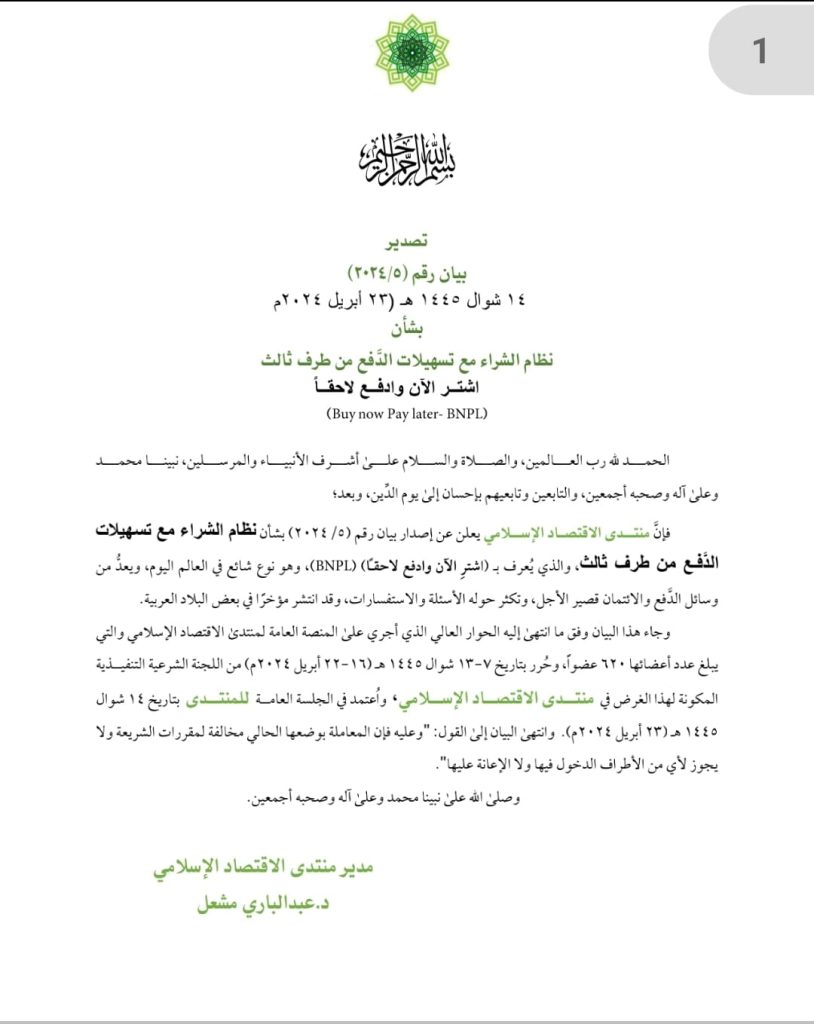 1
بسم الله الرحمن الرحيم
تصدير
بيان رقم (٢٠٢٤/٥)
١٤ شوال ١٤٤٥ هـ (٢٣ أبريل ٢٠٢٤م
بشأن
نظام الشراء مع تسهيلات الدَّفع من طرف ثالث
اشتــر الآن وادفــع لاحقــاً
(Buy now Pay later- BNPL)
الحمــد لله رب العــالمين، والصــلاة والســلام علــىٰ أشــرف الأنبيــاء والمرســلين، نبينــا محمــد
وعلىٰ آله وصحبه أجمعين، والتابعين وتابعيهم بإحسان إلىٰ يوم الدِّين، وبعد؛
فإنَّ منتــدى الاقتصــاد الإســلامي يعلن عن إصدار بيان رقم (٥/ ٢٠٢٤) بشأن نظام الشراء مع تسهيلات
الدَّفــع من طرف ثالث، والذي يُعرف بـ (اشترِ الآن وادفع لاحقًا) (BNPL)، وهو نوع شائع في العالم اليوم، ويعدُّ من
وسائل الدَّفع والائتمان قصير الأجل، وتكثر حوله الأسئلة والاستفسارات، وقد انتشر مؤخرًا في بعض البلاد العربية.
وجاء هذا البيان وفق ما انتهىٰ إليه الحوار العالي الذي أجري علىٰ المنصة العامة لمنتدىٰ الاقتصاد الإسلامي والتي
يبلغ عدد أعضائها ٦٢٠ عضواً، وحُرر بتاريخ ٧-١٣ شوال ١٤٤٥ هـ (١٦-٢٢ أبريل ٢٠٢٤م) من اللجنة الشرعية التنفيــذية
المكونة لهذا الغرض في منتــدى الاقتصــاد الإســلامي، واُعتمد في الجلسة العامــة للمنتــدى بتاريخ ١٤ شوال
١٤٤٥ هـ (٢٣ أبريل ٢٠٢٤م). وانتهىٰ البيان إلىٰ القول: "وعليه فإن المعاملة بوضعها الحالي مخالفة لمقررات الشريعة ولا
يجوز لأي من الأطراف الدخول فيها ولا الإعانة عليها".
وصلىٰ الله علىٰ نبينا محمد وعلىٰ آله وصحبه أجمعين.
مدير منتدى الاقتصاد الإسلامي
د.عبدالباري مشعل